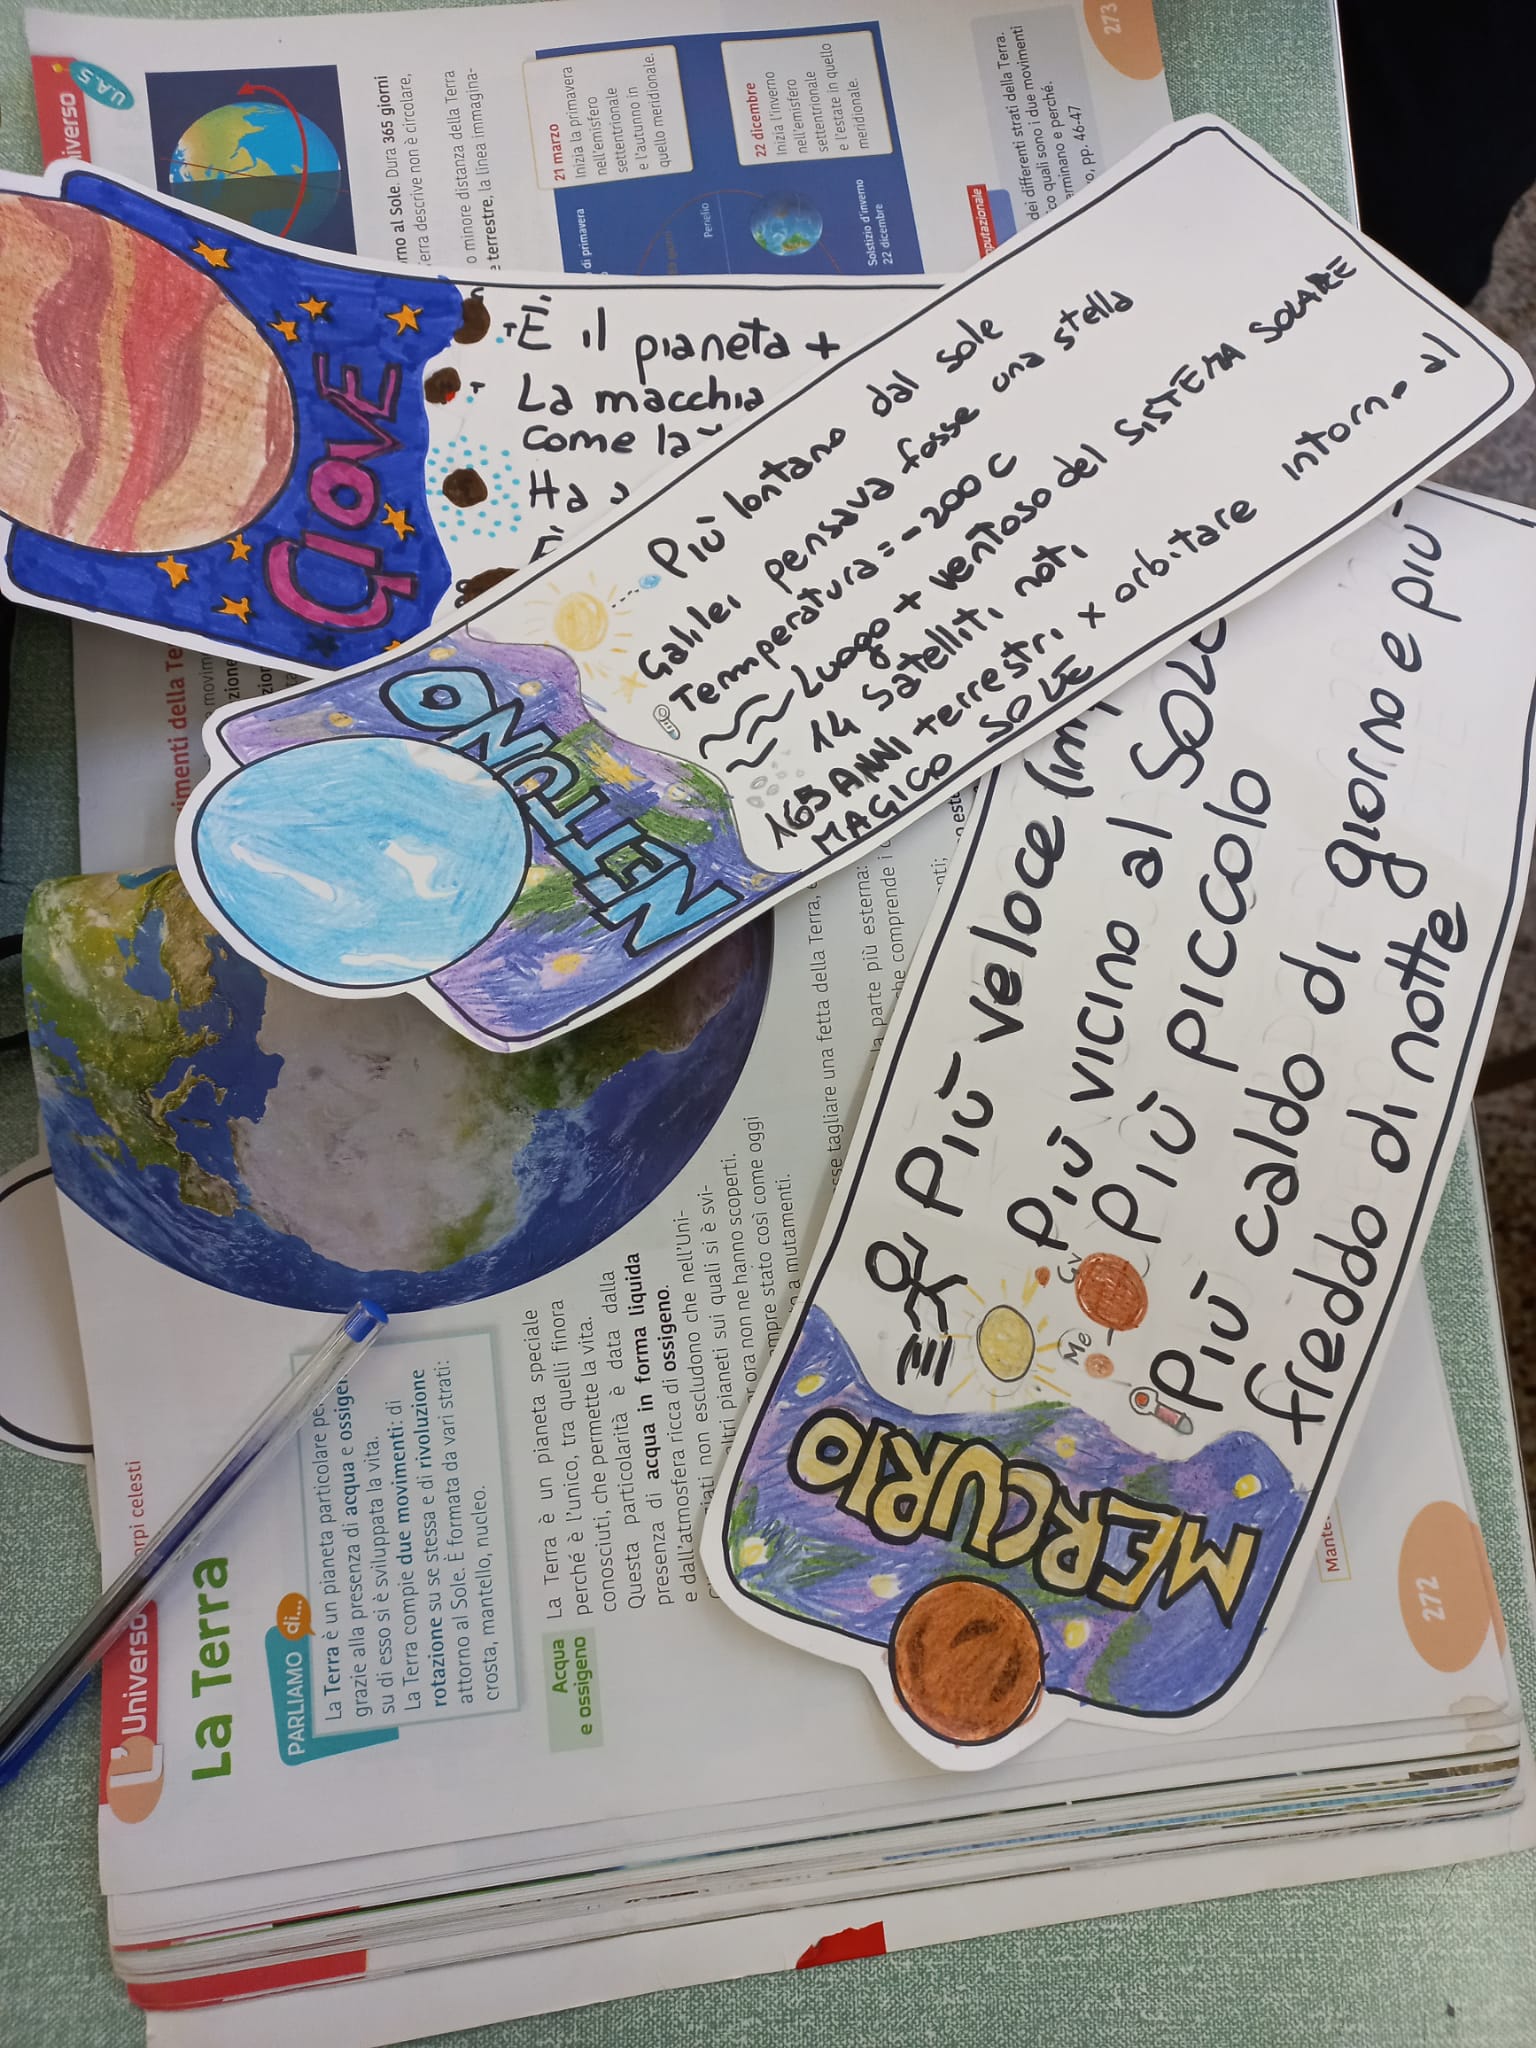 GIOVE
È il pianeta +
La macchia
come la
Ha
NETTUNO
Più lontano dal sole
Galilei pensava fosse una stella
Temperatura = - 200 C
Luogo + ventoso del SISTEMA SOLARE
14 satelliti noti
165 ANNI terrestri x orbitare intorno al
MAGICO SOLE
MERCURIO
Più veloce (im
Più vicino al SOLE
Più piccolo
Me
Più caldo di giorno e più
freddo di notte
L'Universo
orpi celesti
La Terra
PARLIAMO di...
La Terra è un pianeta particolare pe
grazie alla presenza di acqua e ossige
su di esso si è sviluppata la vita.
La Terra compie due movimenti: di
rotazione su se stessa e di rivoluzione
attorno al Sole. È formata da vari strati:
crosta, mantello, nucleo.
Acqua
e ossigeno
La Terra è un pianeta speciale
perché è l'unico, tra quelli finora
conosciuti, che permette la vita.
Questa particolarità è data dalla
presenza di acqua in forma liquida
e dall'atmosfera ricca di ossigeno.
iati non escludono che nell'Uni-
ltri pianeti sui quali si è svi-
er ora non ne hanno scoperti.
mpre stato così come oggi
a mutamenti.
sse tagliare una fetta della Terra,
la parte più esterna:
che comprende i
nti;
Mante
272
iverso
U.A.5
rno al Sole. Dura 365 giorni
erra descrive non è circolare,
o minore distanza della Terra
e terrestre, la linea immagina-
21 marzo
Inizia la primavera
nell'emisfero
settentrionale
e l'autunno in
quello meridionale.
22 dicembre
Inizia l'inverno
nell'emisfero
settentrionale
e l'estate in quello
meridionale.
di primavera
Perielio
Solstizio d'inverno
22 dicembre
mputazionale
dei differenti strati della Terra.
co quali sono i due movimenti
erminano e perché.
o, pp. 46-47
273
rimenti della Te
movim
zione